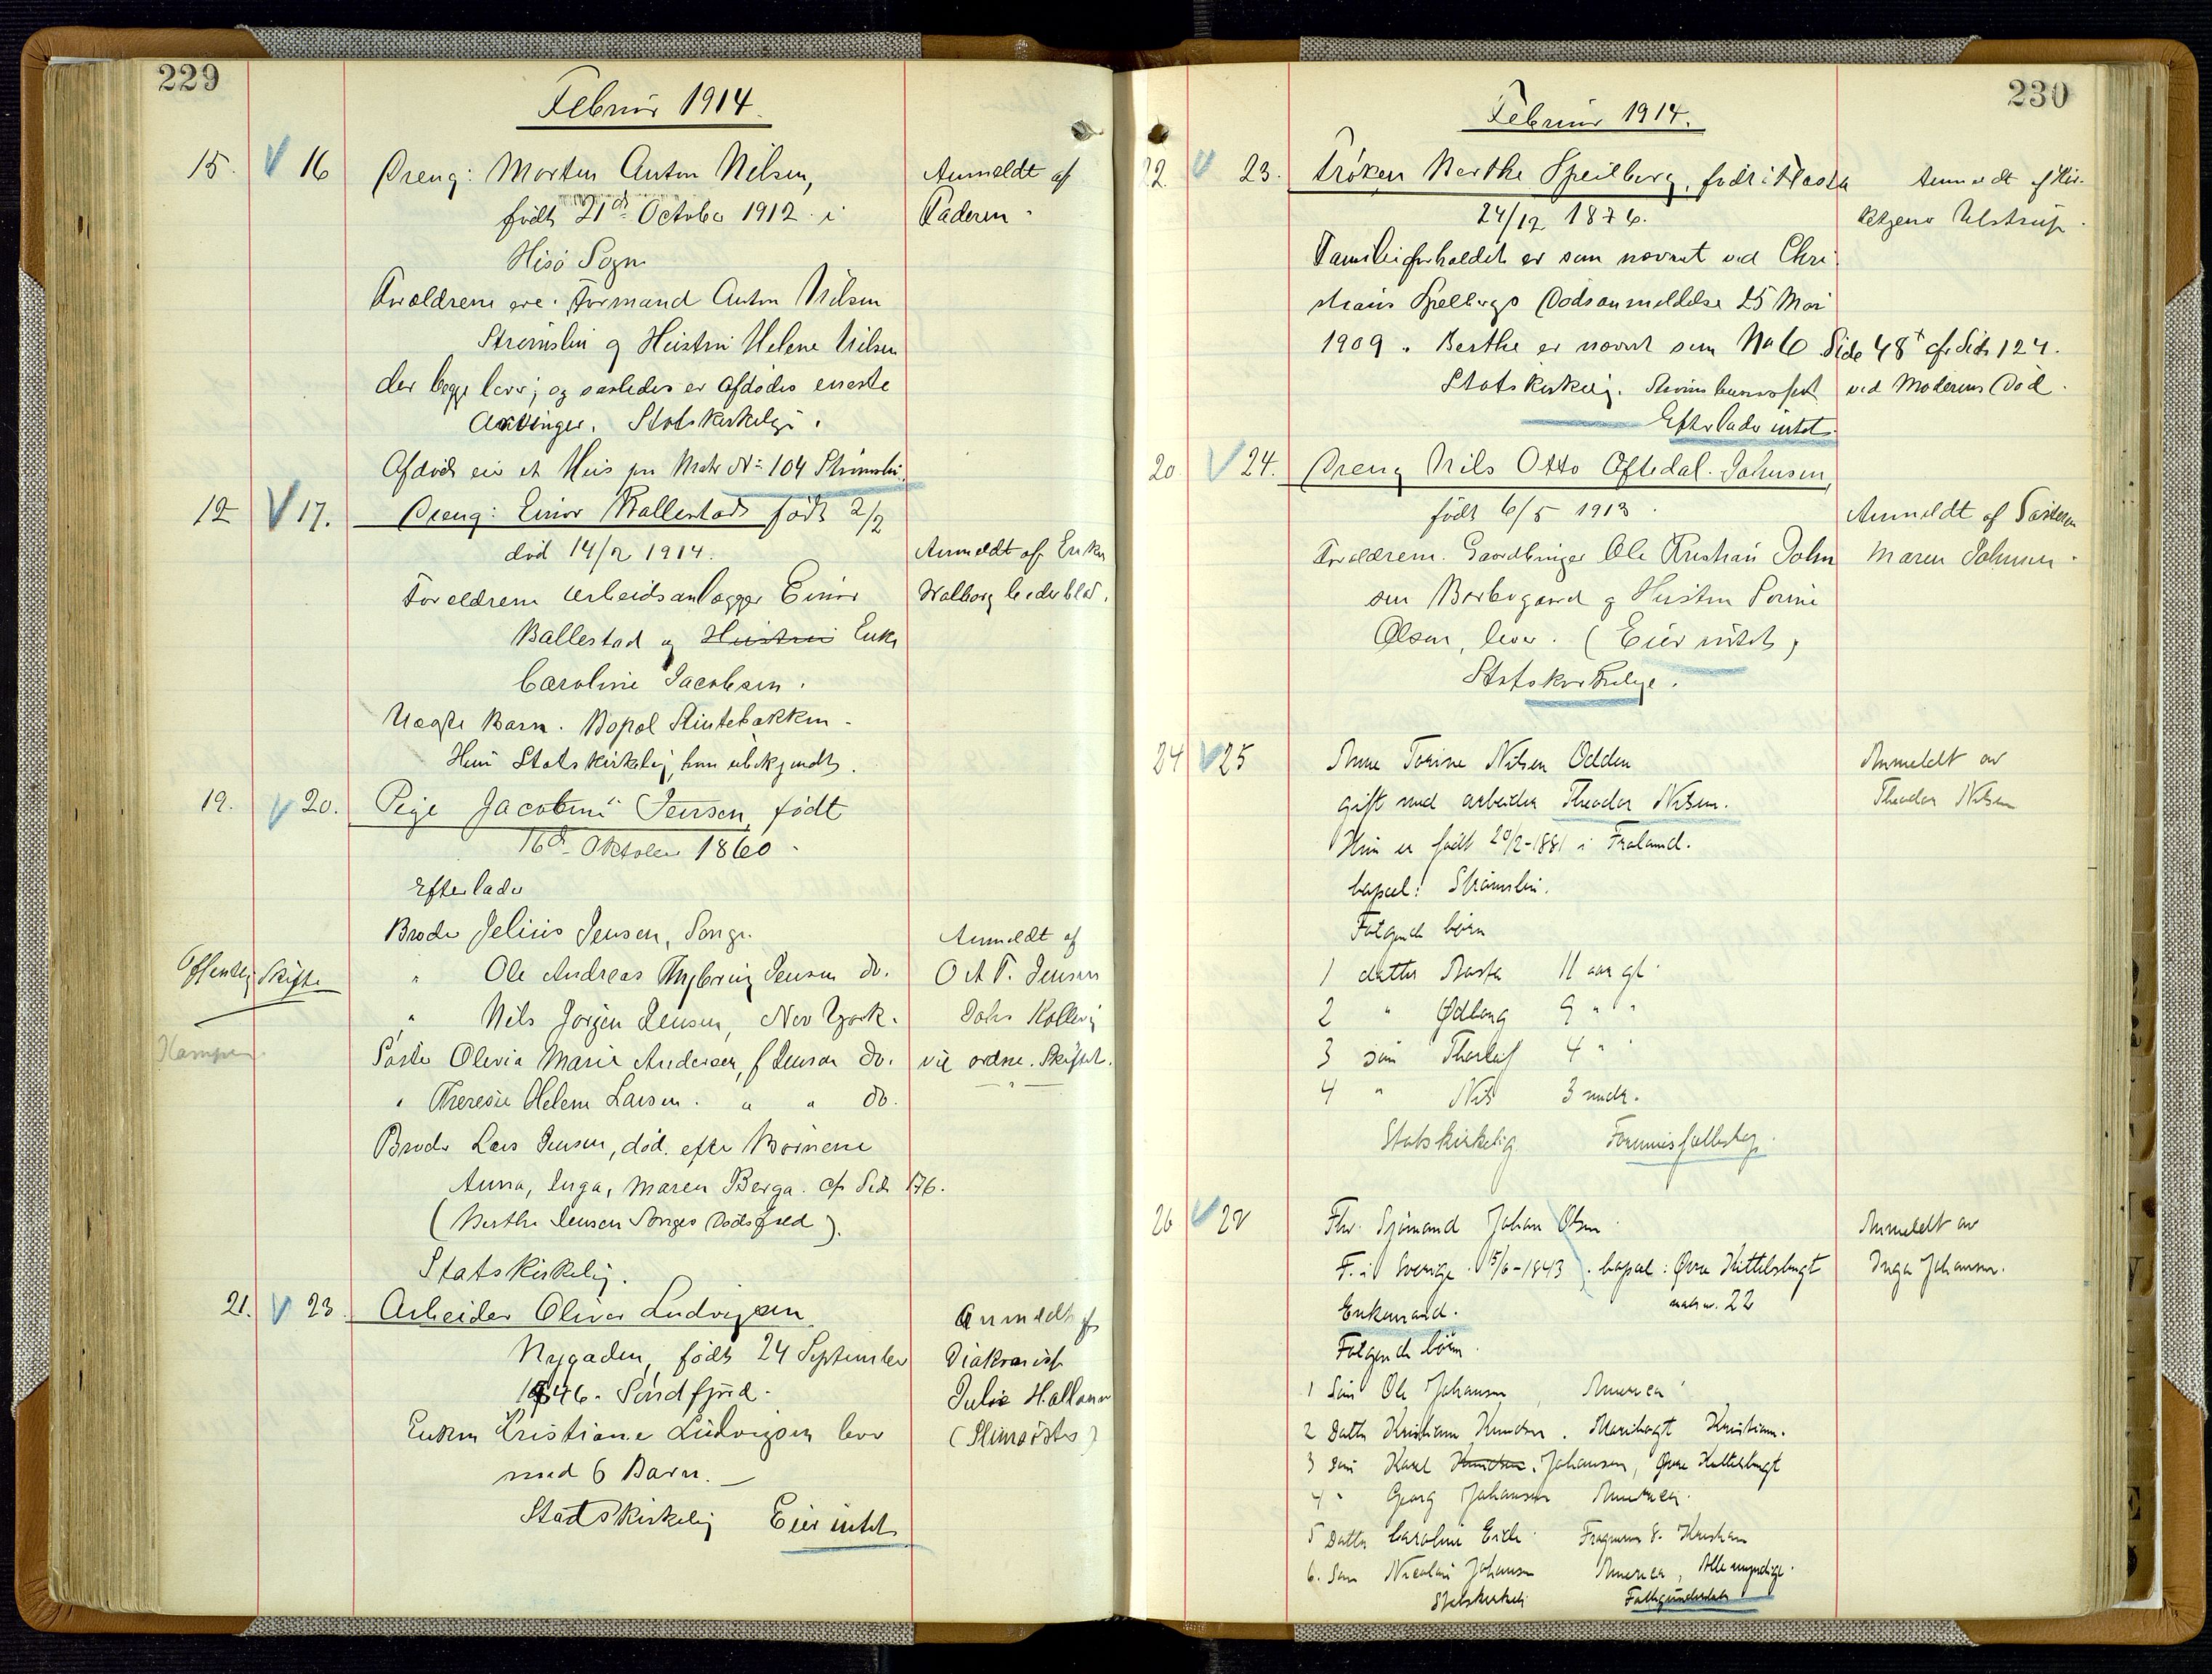 229
Februar 1914.
15. V 16 Dreng: Morten Anton Nilsen, Anmeldt af
født 21de October 1912 i Faderen.
Hisø Sogn
Forældrene ere: Formand Anton Nilsen
Strømsbu og Hustru Helene Nilsen
der begge lever; og saaledes er Afdødes eneste
Arvinger. Statskirkelig.
Afdøde eier et Hus paa Matr No 104 Strømsbu.
12 V 17. Dreng: Einar Ballestad født 2/2
død 14/2 1914. Anmeldt af Enke
Forældrene Arbeidsanlægger Einar Walborg Cederblad.
Ballestad og Hustru Enke
Caroline Jacobsen.
Uægte Barn. Bopæl Stintebakken.
Hun Statskirkelig, han ubekjendt.
19. V 20. Pige Jacobine Jensen, født
16de Oktober 1860.
Efterlader
Broder Julius Jensen, Songe. Anmeldt af
Offentlig Skifte " Ole Andreas Jensen do. O A T. Jensen
" Nils Jørgen Jensen, New York. Kollevig
Kamper Søster Olevia Marie Andersen, f Jensen do. vil ordne Skiftet.
" Theresie Helene Larsen. " " do.
Broder Lars Jensen, død. efter Børnene
Anna, Inga, Maren Berga. cf Side 176.
(Berthe Jensen Songes Dødsfred).
Statskirkelig.
21. V 23. Arbeider Oliver Ludvigsen Anmeldt af
Nygaden, født 24 September Diakonisse
1846. Søndfjord. Julie Halland
Enken Kristiane Ludvigsen lever
med 6 Barn.
Statskirkelig Eier intet
230
Februar 1914.
22 V 23. Frøken Berthe Speilberg, født i 24/12 1876. Anmeldt af
Familieforholdet er som nævnt ved Chri-
stians Speilbergs Dødsanmeldelse 25 Mai
1909. Berthe er nævnt som No 6 Side 48 cf. Side 124.
Statskirkelig. ved Moderens Død.
Efterlader intet.
20. V 24. Dreng Nils Otto Oftedal Johnsen,
født 6/5 1913. Anmeldt af Søsteren
Forældrene. Gaardbruger Ole Kristian John Maren Johnsen.
sen Barbugaard og Hustru
Olsen, lever. (Eier intet)
Statskirkelige.
24 V 25 Anne Torine Nilsen Odden Anmeldt av
gift med arbeider Theodor Nilsen. Theodor Nilsen
Hun er født 20/2-1881 i Froland.
bopæl: Strømsbu.
Følgende børn
1 datter Aasta 11 aar gl.
2 " Ødborg 9 " "
3 søn Thorleif 4 " "
4 " Nils 3 mdr.
Statskirkelig Formuesfællesskap.
26 V 27 Fhv. Sjømand Johan Olsen Anmeldt av
F. i Sverige 15/6-1843. bopæl: Øvre Kittelsbugt Inga Johansen.
matr. nr. 22
Enkemand.
Følgende børn
1 Søn Ole Johansen, America
2 Datter Kristiane Knudsen. Kristian.
3 Søn Karl Knudsen. Johansen, Øvre Kittelsbugt
4 " Georg Johansen America.
5 Datter Caroline Kristian
6. Søn Nicolai Johansen America, Alle myndige.
Statskirkelig